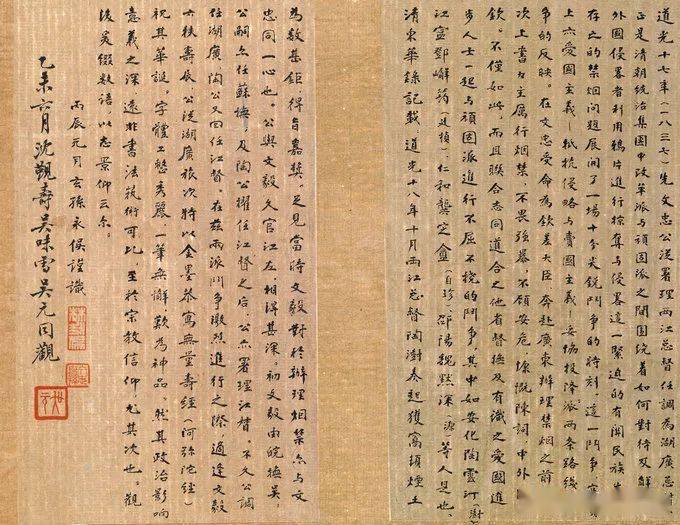 道光十七年（一八三七）先文忠公從署理兩江總督任調為湖廣總
正是清朝統治集團中改革派与頑固派之間圍繞着如何對待及解
外國侵畧者利用鴉片進行掠奪与侵畧這一緊迫的有関民族生
存之的禁烟問題展開了一場十分尖銳鬥爭的時刻。這一鬥爭实
上亦愛國主義—抵抗侵略与賣國主義—妥協投降派兩条路綫
争的反映。在文忠受命為欽差大臣，奔赴廣東辦理禁烟之前
次上書力主厲行烟禁，不畏強暴，不顧安危，慷慨陳詞，中外
欽。不僅如此，而且联合志同道合之他省督撫及有識之愛國進
步人士一起与頑固派進行不屈不撓的鬥爭。其中如安化陶雲汀（澍
江寧鄧嶰筠（廷楨）、仁和龔定盦（自珍）、邵陽魏默深（源）等人是也。
清東華錄記載，道光十八年十月兩江總督陶澍奏起獲窩頓煙土
為數甚鉅，得旨嘉獎。足見當時文毅對於辦理烟禁亦与文
忠同一心也。公與文毅久官江左，相得甚深。初文毅由皖撫吳，
公嗣亦任蘇撫，及陶公擢任江督之后，公亦署理江督。不久公調
任湖廣，陶公又回任江督。在茲兩派鬥爭激烈進行之際，適逢文毅
六秩壽辰，公從湖廣旅次，特以金墨恭寫無量壽經（阿弥陀經）
祝其華誕。字體工整秀麗，一筆無懈，歎為神品。然其政治影响
意義之深，遠非書法藝術可比，至於宗教信仰，尤其次也。觀
後爰綴數語，以志景仰云尔。
丙辰元月玄孫永俁謹識
乙未六月沈觀壽吳味雪吳元同觀